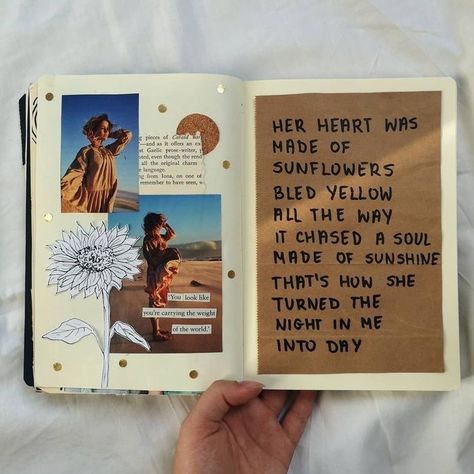 pieces of
—and as it offers an ex
et Gaelic prose-writer,
oted, even though the
all the original charm
he language.
ng from Iona, on one of
remember to have seen,
"You look like
you're carrying the weight
of the world."
HER HEART WAS
MADE OF
SUNFLOWERS
BLED YELLOW
ALL THE WAY
IT CHASED A SOUL
MADE OF SUNSHINE
THAT'S HOW SHE
TURNED THE
NIGHT IN ME
INTO DAY